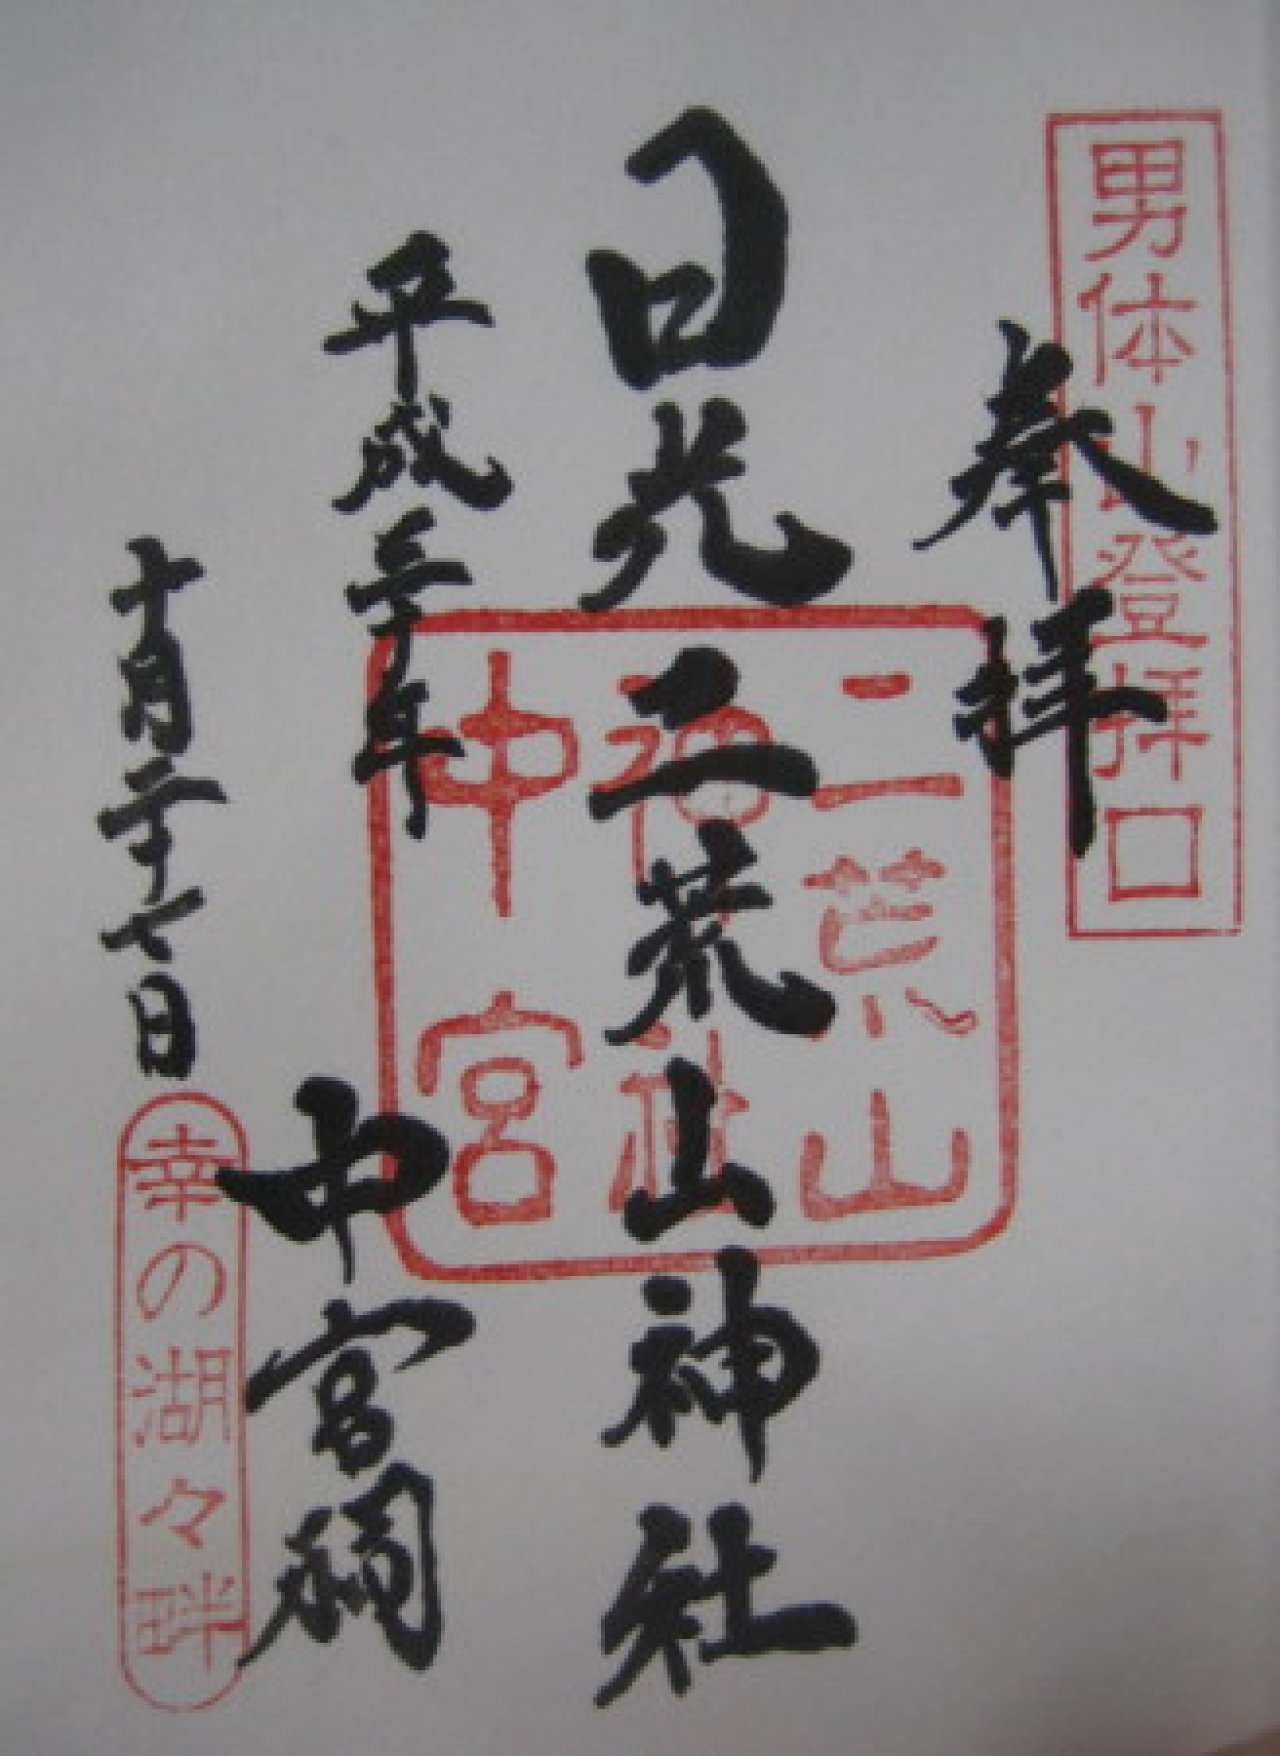 男体山登拝口
奉拝
日光二荒山神社
二荒山
神社
中宮
中宮祠
平成二十年
十月二十七日
幸の湖々畔